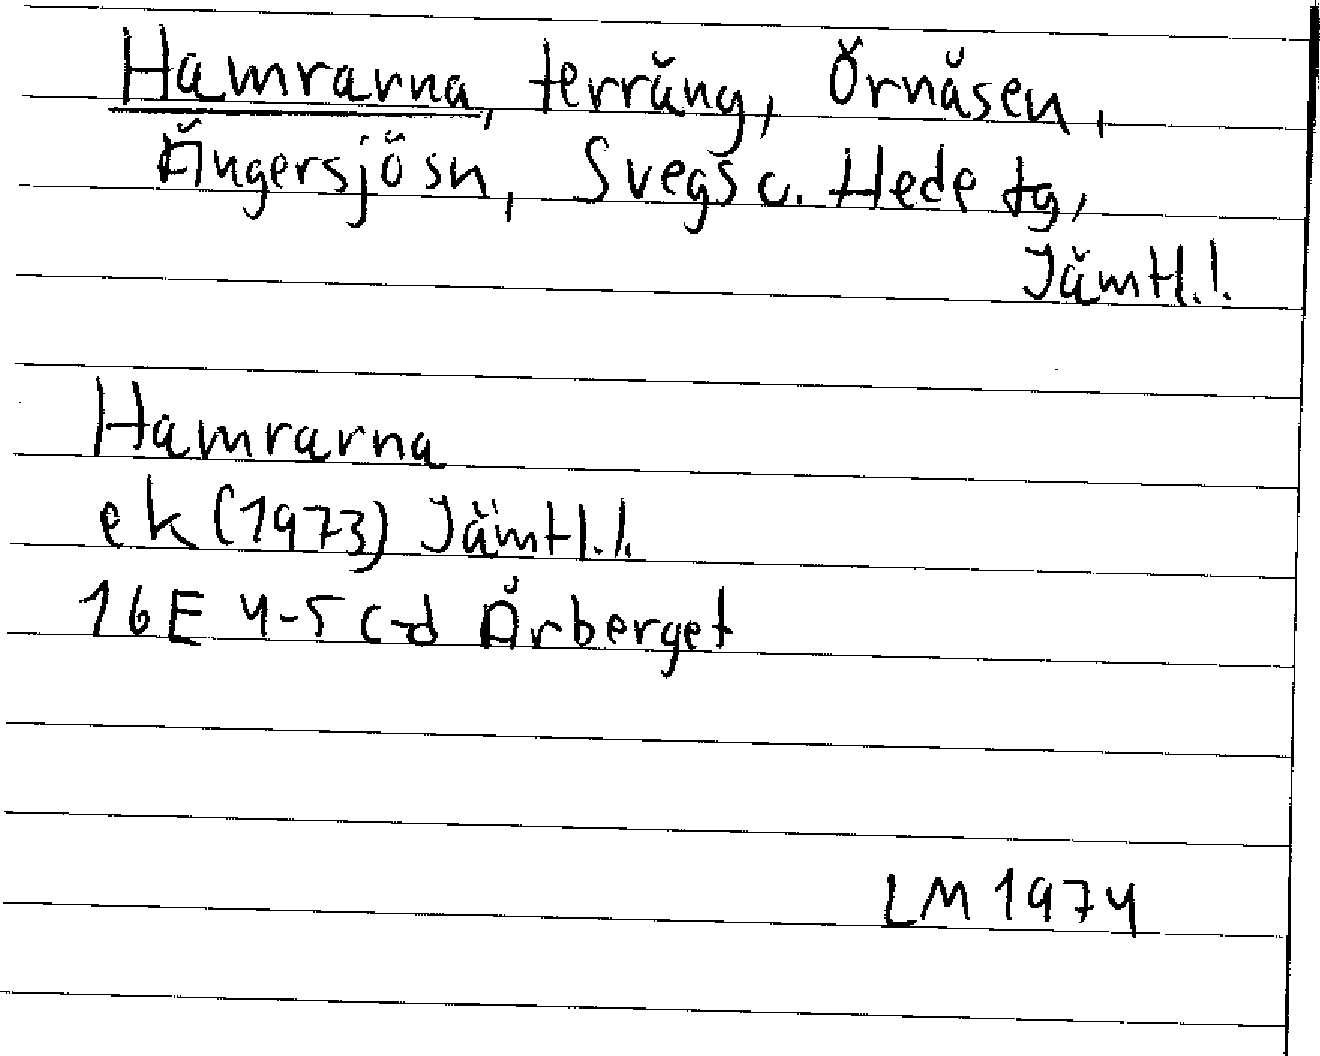 Hamrarna, terräng, Örnåsen,
Ängersjö sn, Svegs o. Hede tg,
Jämtl.l.
Hamrarna
ek (1973) Jämtl.l.
16E 4-5 c-d Årberget
LM 1974